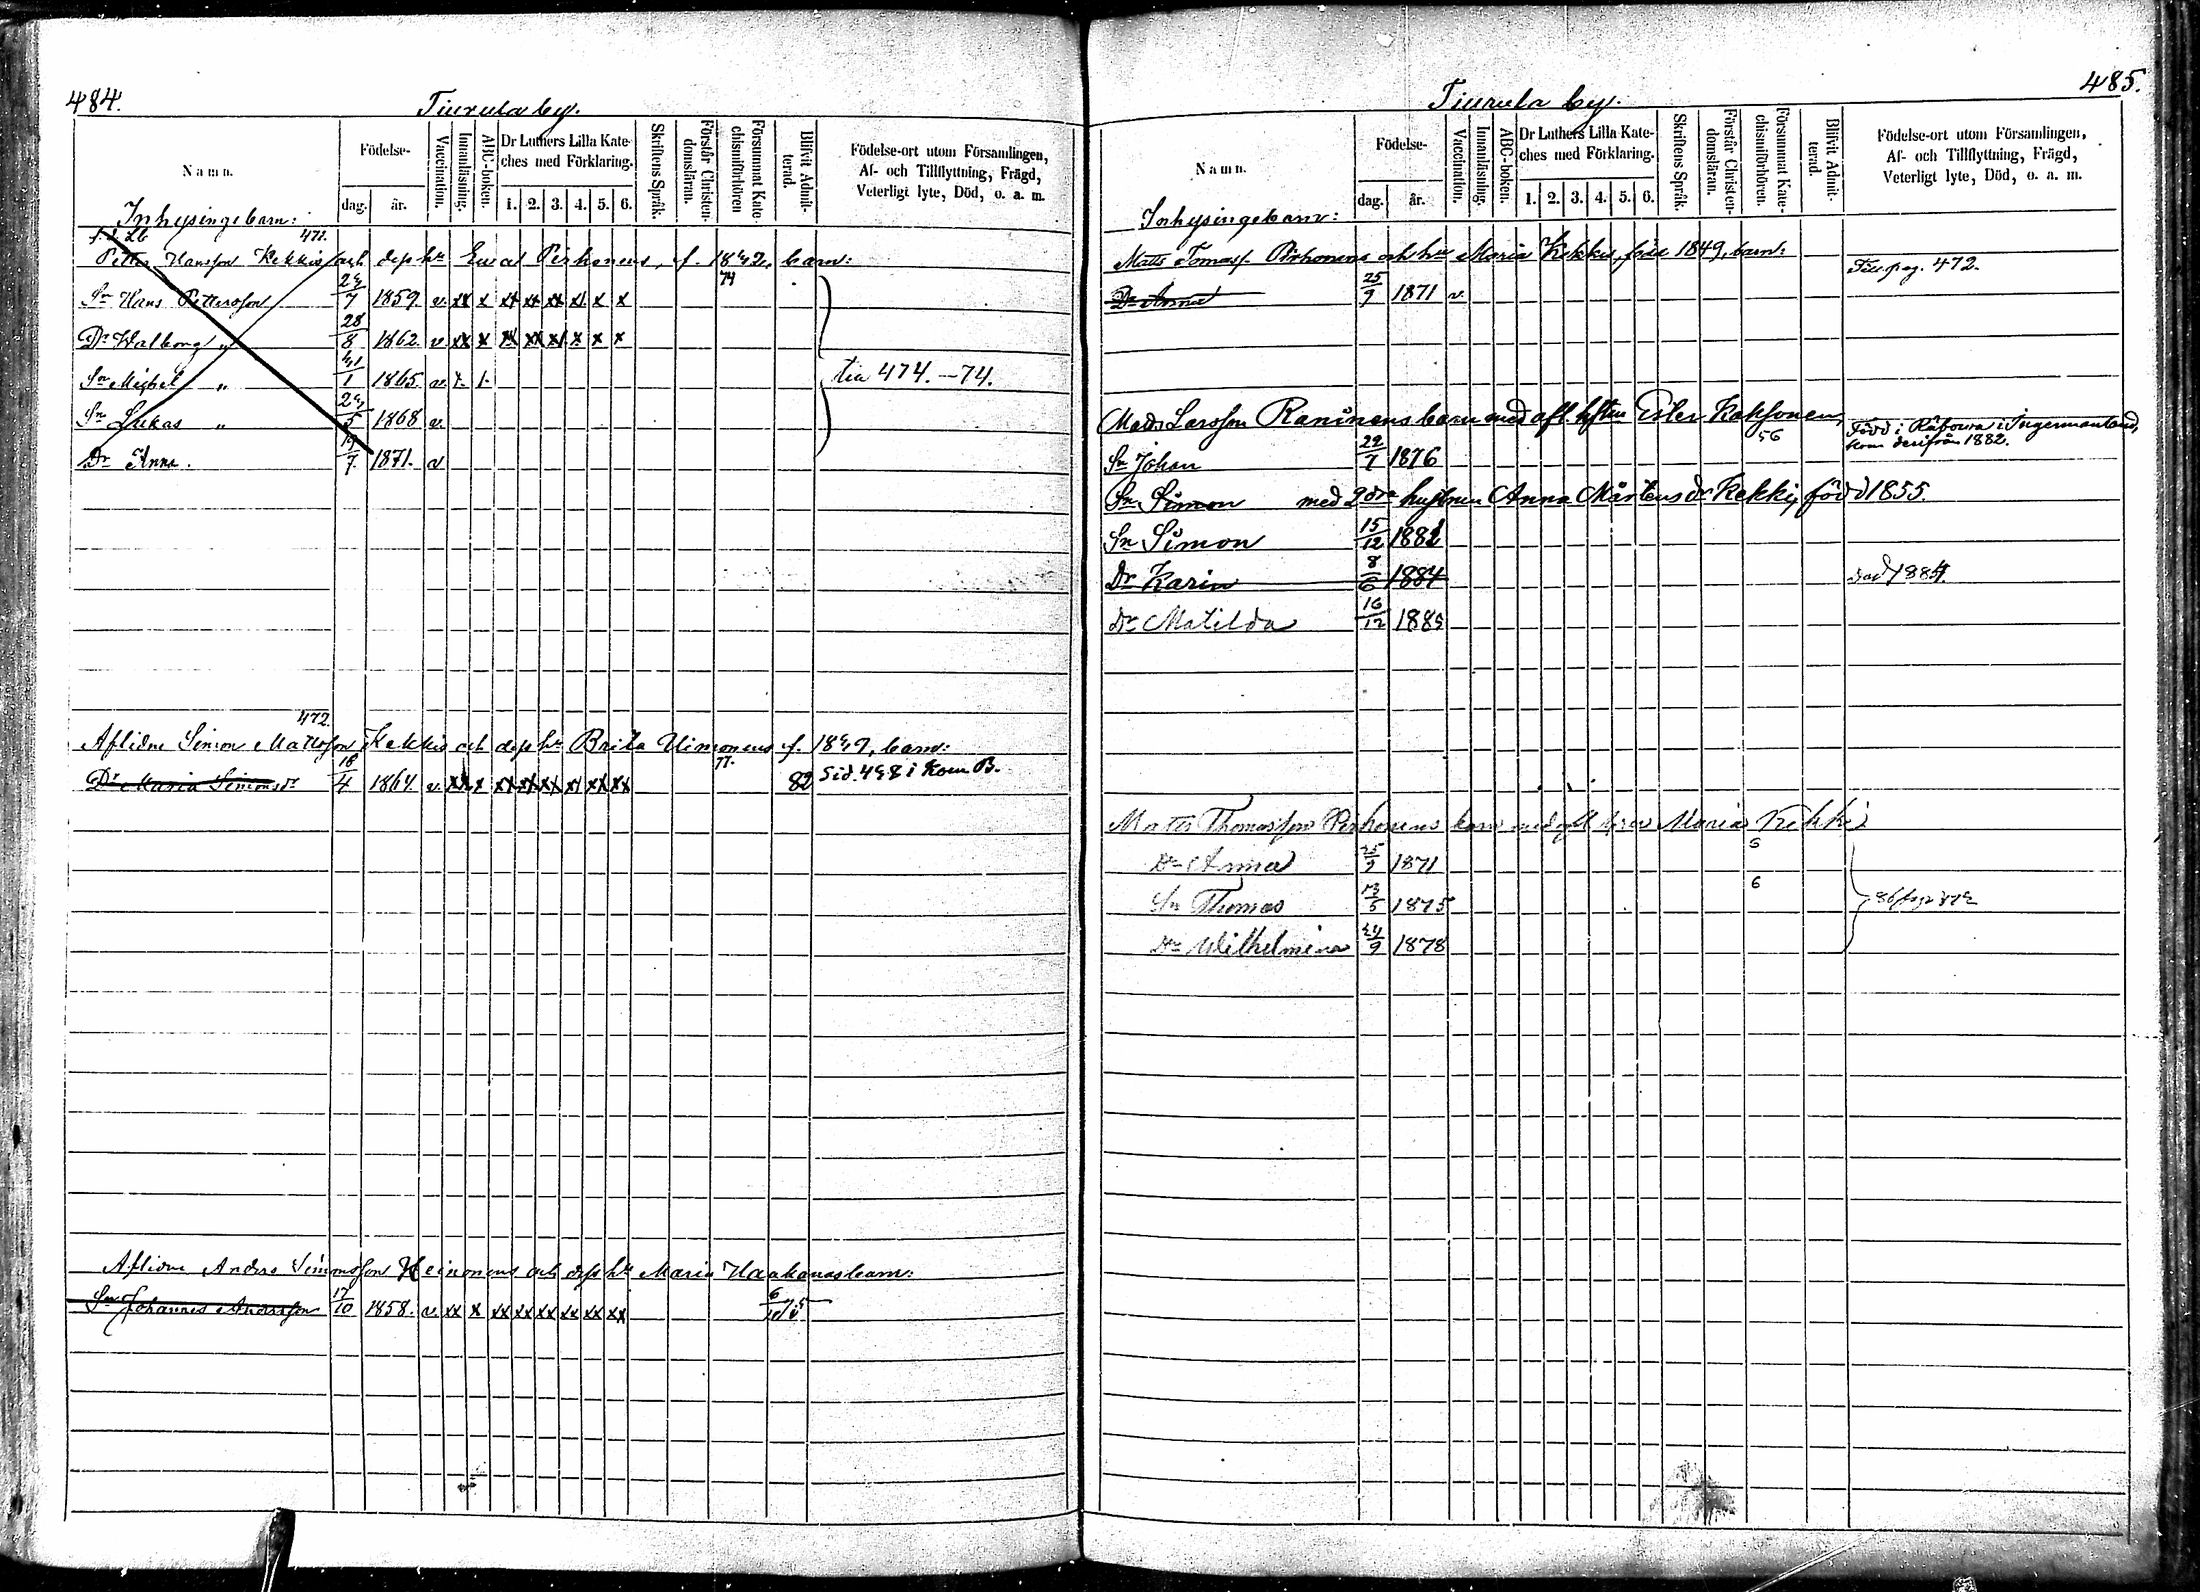 484.
Tiurula by.
Namn.
Födelse-
dag.
år.
Vaccination.
Innanläsning.
ABC-boken.
Dr Luthers Lilla Kate-
ches med Förklaring.
1. 2. 3. 4. 5. 6.
Skriftens Språk.
Förstår Christen-
domsläran.
Försummat Kate-
chismiförhören
Blifvit Admit-
terad.
Födelse-ort utom Församlingen,
Af- och Tillflyttning, Frägd,
Veterligt lyte, Död, o. a. m.
Inhysingebarn:
Petter Hansson Kekkis och desshu Pirhonens, f. 1842, barn:
74
Sn Hans Pettersson 7 1859. v. xx x xx xx xx x x x
Dr Walborg " 28/8 1862 v xx x xx xx x x x x
Sn Michel " 1 1865. v.
tia 474. -74.
Sn Lukas " 5 1868 v.
Dr Anna. 19/7. 1871. v
472.
Aflidne Simon Mattsson Kekkis och dess hu Brita barn:
77.
Dr Maria Simonsdr 18/4 1864 v. xx x xx xx xx xx xx xx 82 Sid. 498 i Kom B.
Aflidne Anders Simonsson Heinonens och dess hu Maria barn:
Sn Johannes Andersson 17/10 1858. v. xx x xx xx xx xx xx xx
485.
Tiurula by.
Namn.
Födelse-
dag.
år.
Vaccination.
Innanläsning.
ABC-boken.
Dr Luthers Lilla Kate-
ches med Förklaring.
1. 2. 3. 4. 5. 6.
Skriftens Språk.
Förstår Christen-
domsläran.
Försummat Kate-
chismiförhören.
Blifvit Admit-
terad.
Födelse-ort utom Församlingen,
Af- och Tillflyttning, Frägd,
Veterligt lyte, Död, o. a. m.
Inhysingebarn:
Matts Tomass. Pirhonens och hu Maria Kekkis, född 1849, barn:
Till pag. 472.
Dr Anna 25/9 1871 v.
Mats Larsson Raninens barn med afl. hustru Ester
56
Född i i Ingermanland,
kom derifrån 1882.
Sn Johan 22/7 1876
Sn Simon med 2dra hustrun Anna Mårtensdr Kekki, född 1855.
Sn Simon 15/12 1882
Dr Karin 8/6 1884 död 1884.
Dr Matilda 16/12 1885
Matts Thomasson Pirhonens barn med afl Maria Kekki
Dr Anna 25/9 1871 5
Sn Thomas 13/5 1875 6
Dr Wilhelmina 24/9 1878